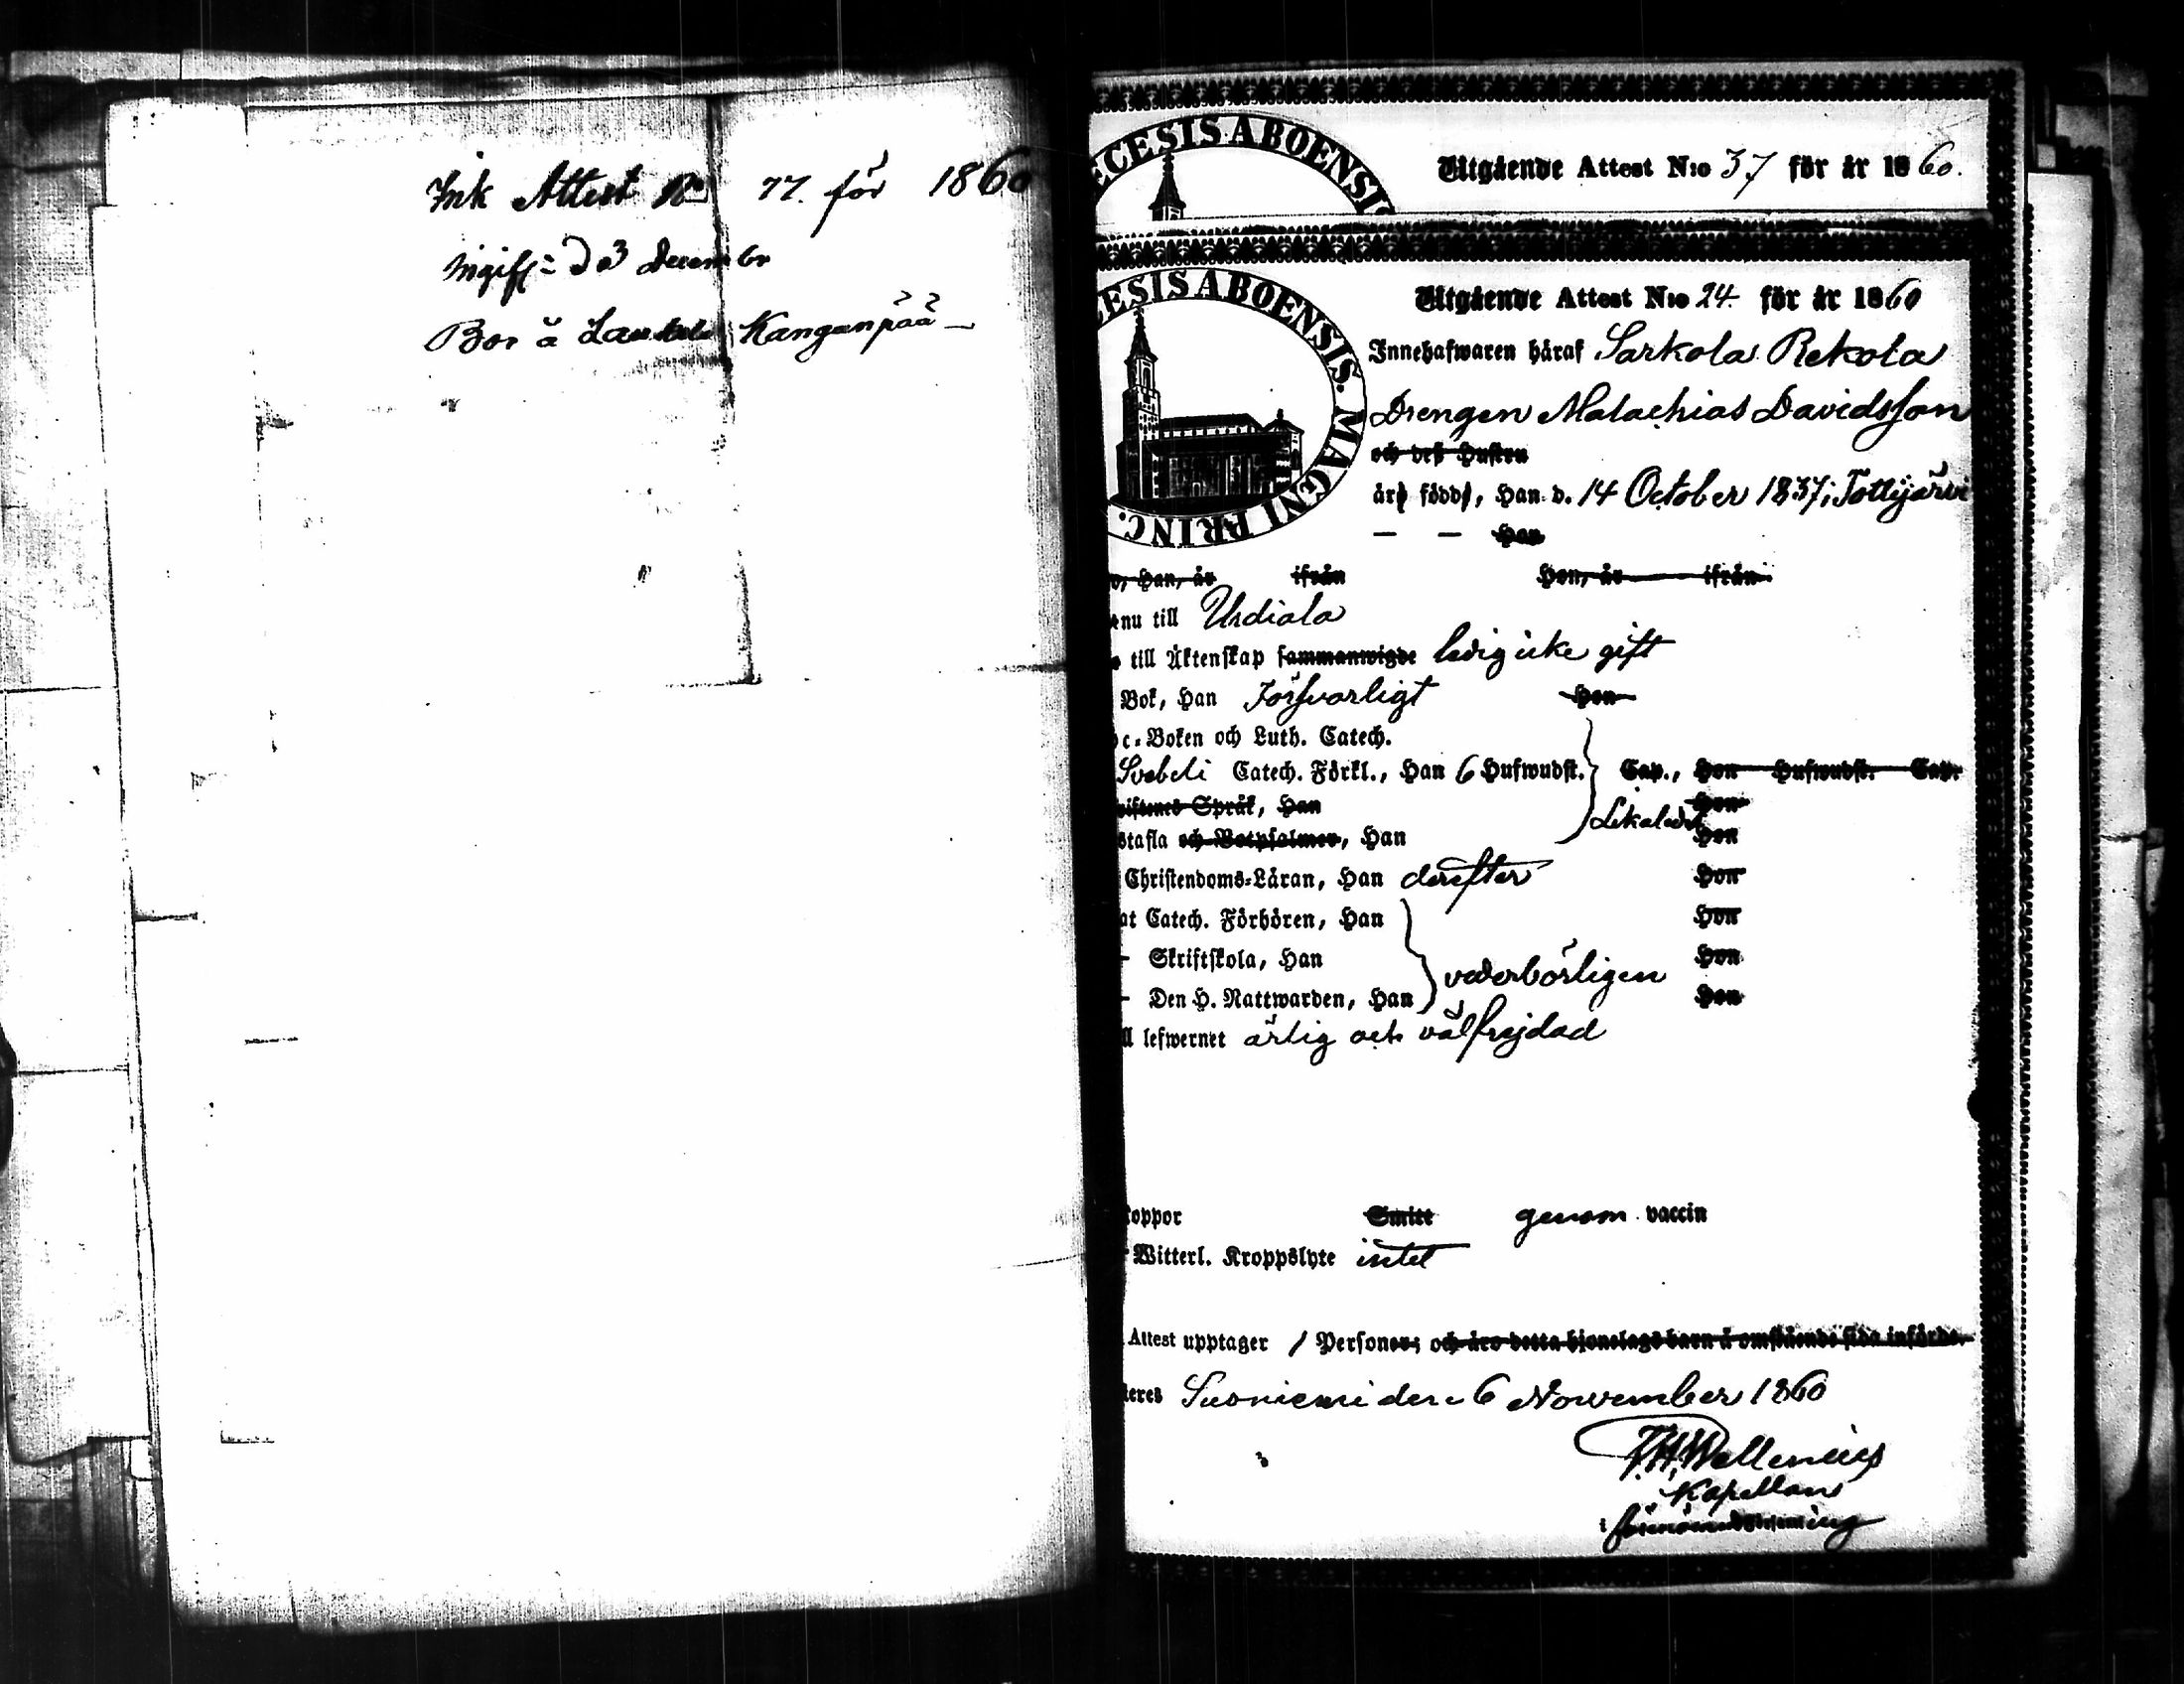 Ink Attest No 77. för 1860
Ingift: d 3 Decembr
Bor å Lautela Kanganpää
ECESIS ABOENSIS
Utgående Attest N:o 37 för år 1860.
ESIS ABOENSIS. MAGNI PRINC.
Utgående Attest N:o 24. för år 1860
Innehafwaren häraf Sarkola Rekola
Drengen Malachias Davidsson
och deß Hustru
är, född, Han d. 14 October 1837 i Tottijärvi
— — Hon
Han, år ifrån Hon, år ifrån
nu till Urdiala
till Äktenskap sammanwigde ledig icke gift
Bok, Han Försvarligt Hon
c-Boken och Luth. Catech.
Svebeli Catech. Förkl., Han 6 Hufwudst. Cap., Hon Hufwudst. Cap.
Språk, Han Hon
stafla och Botpsalmer, Han Likaledes Hon
Christendoms-Läran, Han derefter Hon
at Catech. Förhören, Han Hon
— Skriftskola, Han vederbörligen Hon
— Den H. Nattwarden, Han Hon
ll lefwernet ärlig och välfrejdad
oppor Smitt genom vaccin
Witterl. Kroppslyte intet
Attest upptager 1 Personer; och äro detta hjonelags barn å omstående sida införde.
eres Suoniemi den 6 November 1860
Wallenius
Kapellan